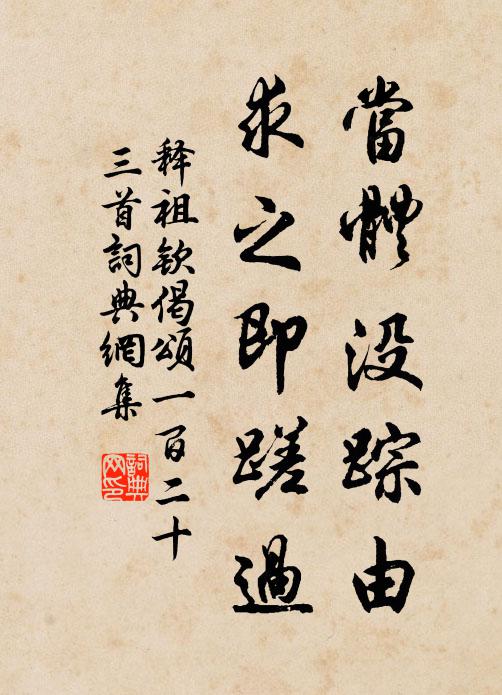 當體没踪由
求之即蹉過
释祖欽偈頌一百二十
三首詞典網集
詞典網印